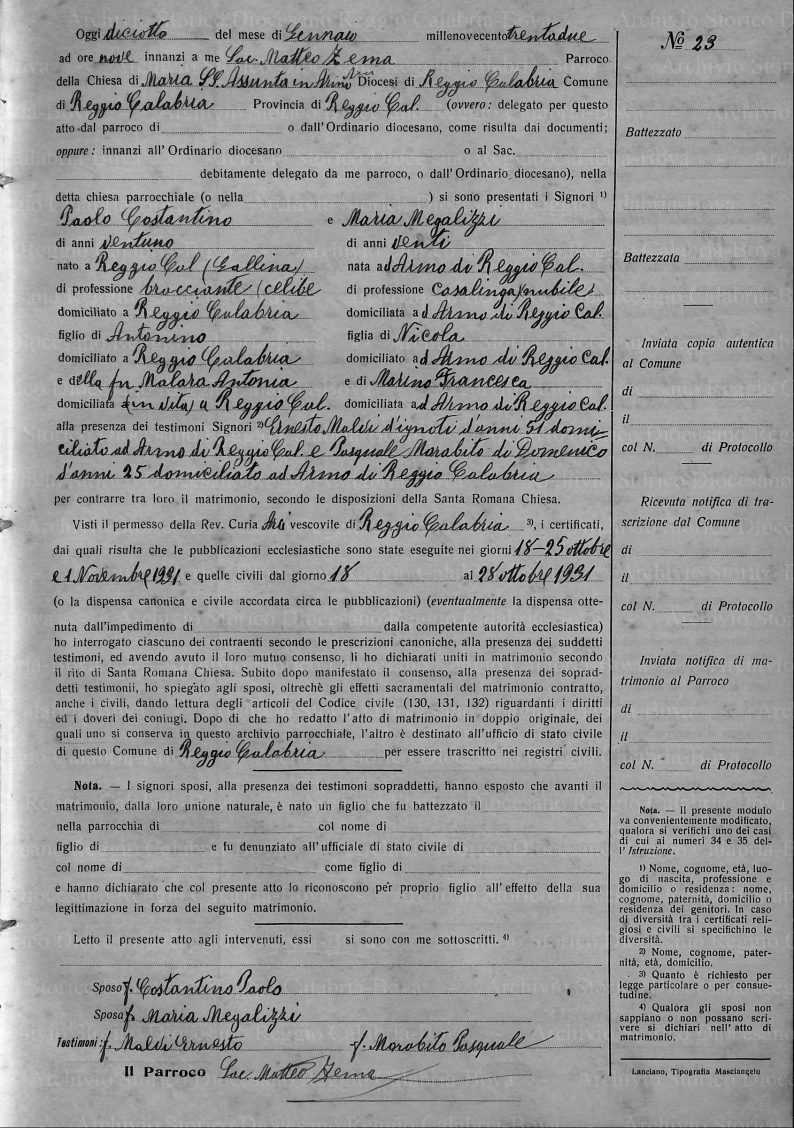 Oggi diciotto del mese di Gennaio millenovecento trentadue
ad ore nove innanzi a me Sac. Matteo Zema Parroco
della Chiesa di Maria SS. Assunta in Armo Diocesi di Reggio Calabria Comune
di Reggio Calabria Provincia di Reggio Cal. (ovvero: delegato per questo
atto dal parroco di o dall'Ordinario diocesano, come risulta dai documenti;
oppure: innanzi all'Ordinario diocesano o al Sac.
debitamente delegato da me parroco, o dall'Ordinario diocesano), nella
detta chiesa parrocchiale (o nella ) si sono presentati i Signori 1)
Paolo Costantino e Maria Megalizzi
di anni ventuno di anni venti
nato a Reggio Cal (Gallina) nata ad Armo di Reggio Cal.
di professione bracciante (celibe di professione casalinga (nubile)
domiciliato a Reggio Calabria domiciliata ad Armo di Reggio Cal.
figlio di Antonino figlia di Nicola
domiciliato a Reggio Calabria domiciliato ad Armo di Reggio Cal.
e della fu Malara Antonia e di Marino Francesca
domiciliata (in vita) a Reggio Cal. domiciliata ad Armo di Reggio Cal.
alla presenza dei testimoni Signori 2) Ernesto Maldi d'ignoti d'anni 51 domi=
ciliato ad Armo di Reggio Cal. e Pasquale Morabito di Domenico
d'anni 25 domiciliato ad Armo di Reggio Calabria
per contrarre tra loro il matrimonio, secondo le disposizioni della Santa Romana Chiesa.
Visti il permesso della Rev. Curia Arcivescovile di Reggio Calabria 3), i certificati,
dai quali risulta che le pubblicazioni ecclesiastiche sono state eseguite nei giorni 18-25 ottobre
e 1 Novembre 1931 e quelle civili dal giorno 18 al 28 ottobre 1931
(o la dispensa canonica e civile accordata circa le pubblicazioni) (eventualmente la dispensa otte-
nuta dall'impedimento di dalla competente autorità ecclesiastica)
ho interrogato ciascuno dei contraenti secondo le prescrizioni canoniche, alla presenza dei suddetti
testimoni, ed avendo avuto il loro mutuo consenso, li ho dichiarati uniti in matrimonio secondo
il rito di Santa Romana Chiesa. Subito dopo manifestato il consenso, alla presenza dei soprad-
detti testimonii, ho spiegato agli sposi, oltrechè gli effetti sacramentali del matrimonio contratto,
anche i civili, dando lettura degli articoli del Codice civile (130, 131, 132) riguardanti i diritti
ed i doveri dei coniugi. Dopo di che ho redatto l'atto di matrimonio in doppio originale, dei
quali uno si conserva in questo archivio parrocchiale, l'altro è destinato all'ufficio di stato civile
di questo Comune di Reggio Calabria per essere trascritto nei registri civili.
Nota. — I signori sposi, alla presenza dei testimoni sopraddetti, hanno esposto che avanti il
matrimonio, dalla loro unione naturale, è nato un figlio che fu battezzato il
nella parrocchia di col nome di
figlio di e fu denunziato all'ufficiale di stato civile di
col nome di come figlio di
e hanno dichiarato che col presente atto lo riconoscono per proprio figlio all'effetto della sua
legittimazione in forza del seguito matrimonio.
Letto il presente atto agli intervenuti, essi si sono con me sottoscritti. 4)
Sposo f. Costantino Paolo
Sposa f. Maria Megalizzi
Testimoni: f. Maldi Ernesto f. Morabito Pasquale
Il Parroco Sac. Matteo Zema
No 23
Battezzato
Battezzata
Inviata copia autentica
al Comune
di
il
col N. di Protocollo
Ricevuta notifica di tra-
scrizione dal Comune
di
il
col N. di Protocollo
Inviata notifica di ma-
trimonio al Parroco
di
il
col N. di Protocollo
Nota. — Il presente modulo
va convenientemente modificato,
qualora si verifichi uno dei casi
di cui ai numeri 34 e 35 del-
l'Istruzione.
1) Nome, cognome, età, luo-
go di nascita, professione e
domicilio o residenza: nome,
cognome, paternità, domicilio o
residenza dei genitori. In caso
di diversità tra i certificati reli-
giosi e civili si specifichino le
diversità.
2) Nome, cognome, pater-
nità, età, domicilio.
3) Quanto è richiesto per
legge particolare o per consue-
tudine.
4) Qualora gli sposi non
sappiano o non possano scri-
vere si dichiari nell'atto di
matrimonio.
Lanciano, Tipografia Masciangelo